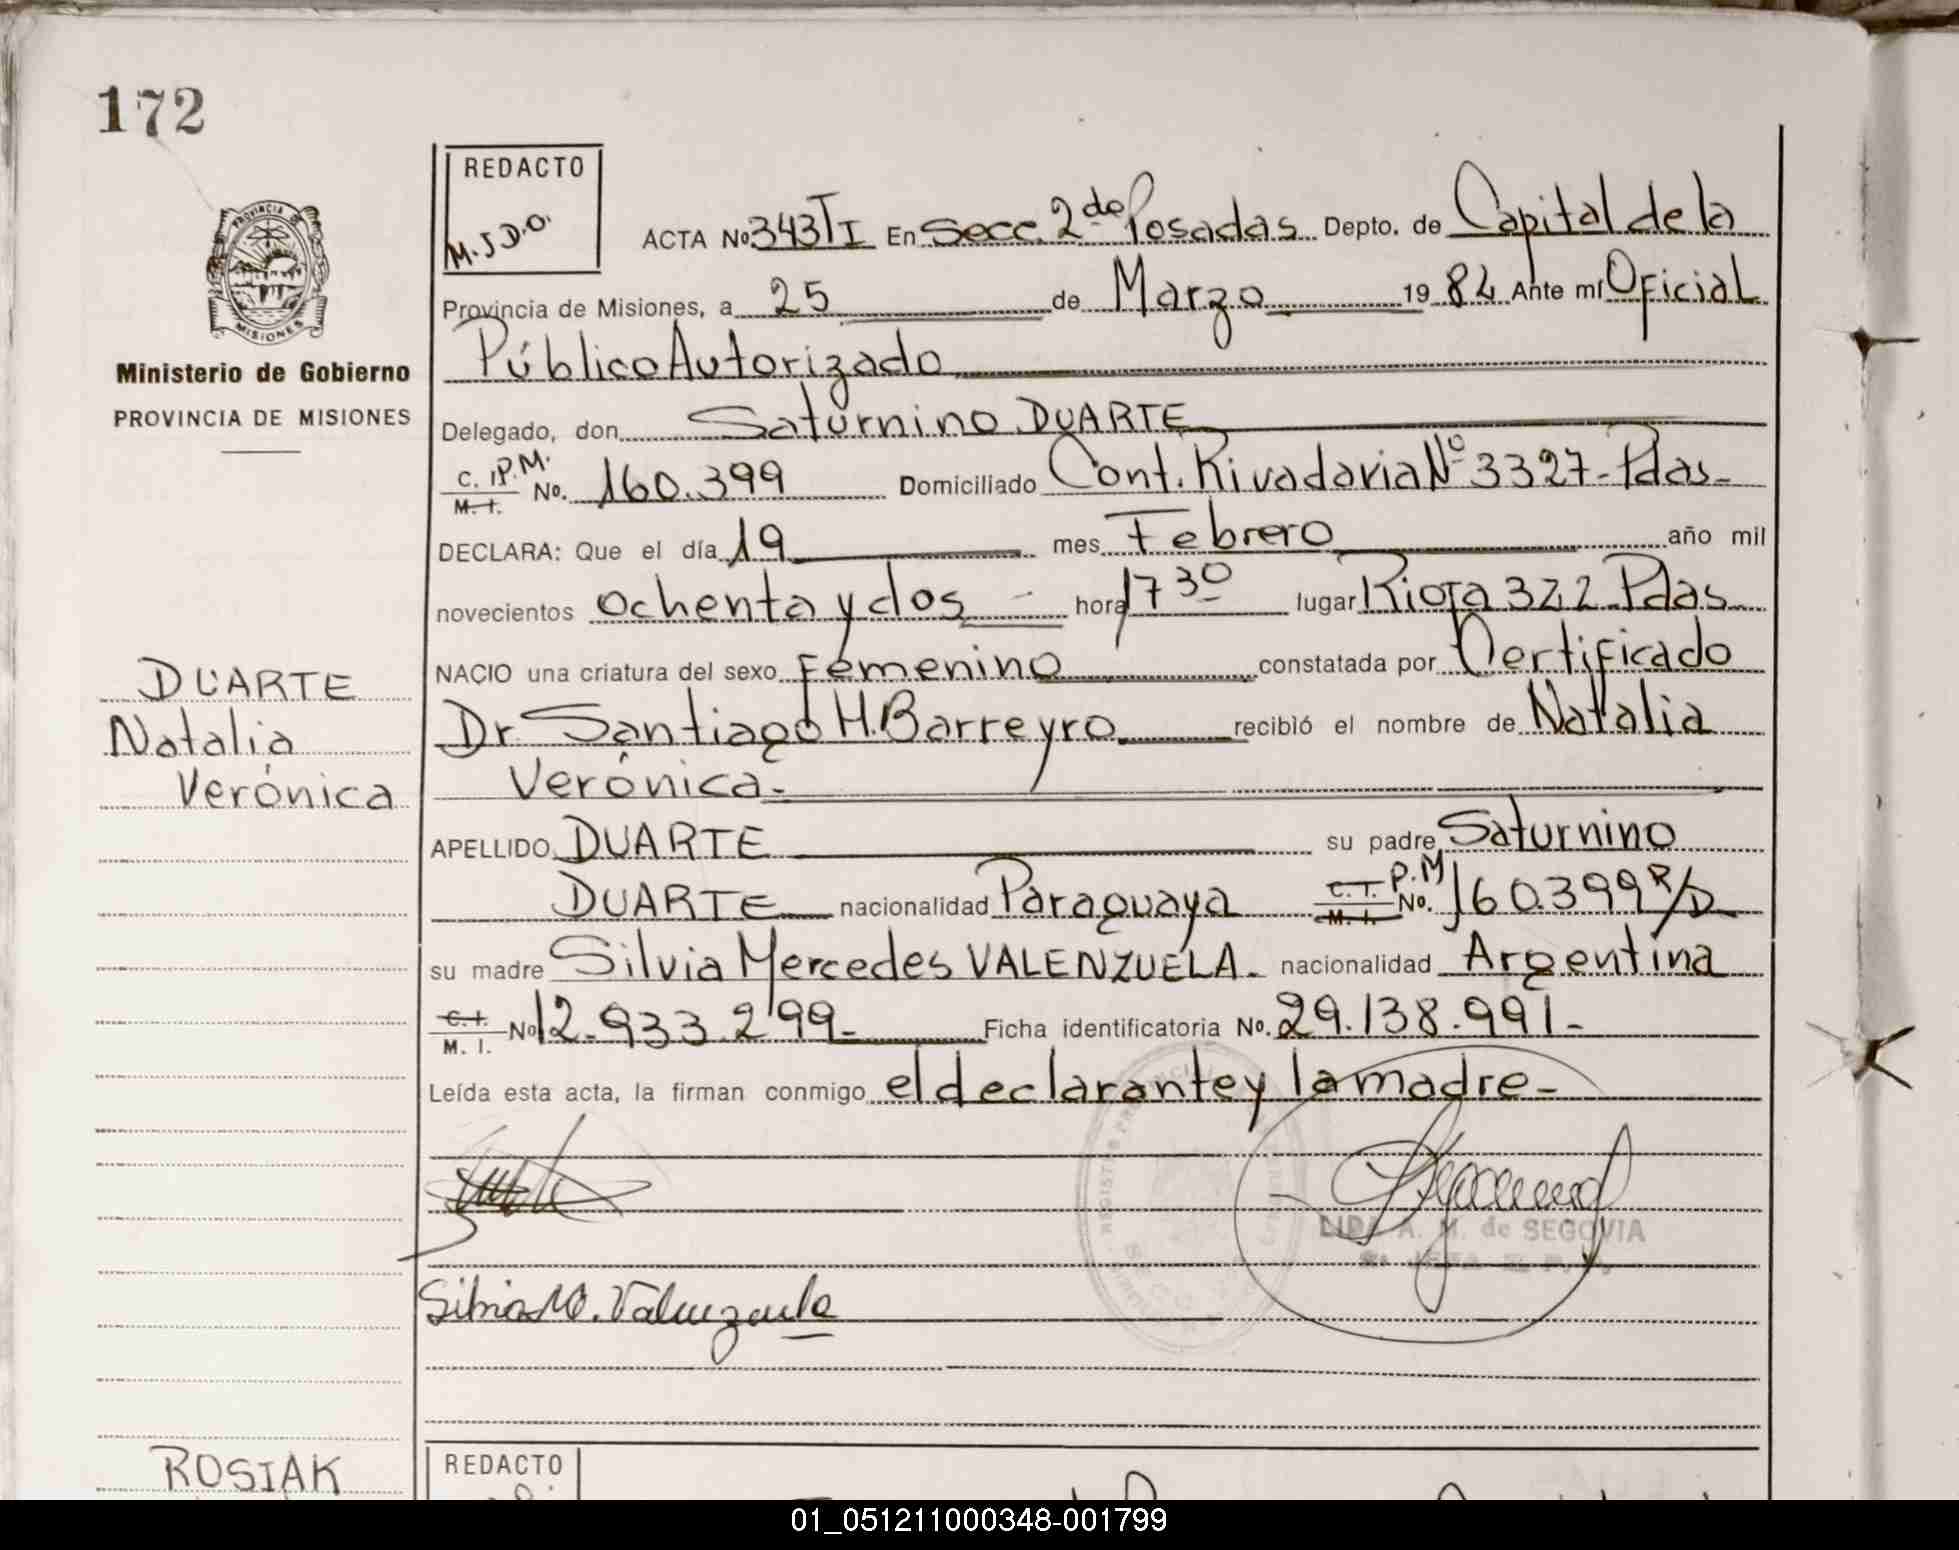 172
REDACTO
M.J.D.O.
ACTA No 343 TI En Secc. 2da Posadas Depto. de Capital de la
Provincia de Misiones, a 25 de Marzo 19 82 Ante mí Oficial
Público Autorizado
PROVINCIA DE
MISIONES
Ministerio de Gobierno
PROVINCIA DE MISIONES
Delegado, don Saturnino DUARTE
C. I. P.M. M. I. No. 160.399 Domiciliado Cont. Rivadavia Nº 3327-Pdas-
DECLARA: Que el día 19 mes Febrero año mil
novecientos ochenta y dos hora 17 30 lugar Rioja 322 Pdas
NACIO una criatura del sexo Femenino constatada por Certificado
Dr Santiago H. Barreyro recibió el nombre de Natalia
Verónica.
DUARTE
Natalia
Verónica
APELLIDO DUARTE su padre Saturnino
DUARTE nacionalidad Paraguaya C. I. P.M M. I. No. 160.399 R/D
su madre Silvia Mercedes VALENZUELA. nacionalidad Argentina
C. I. M. I. No 12.933.299- Ficha identificatoria No. 29.138.991-
Leída esta acta, la firman conmigo el declarante y la madre-
LIDA A. M. de SEGOVIA
Silvia M. Valenzuela
ROSIAK
REDACTO
01_051211000348-001799